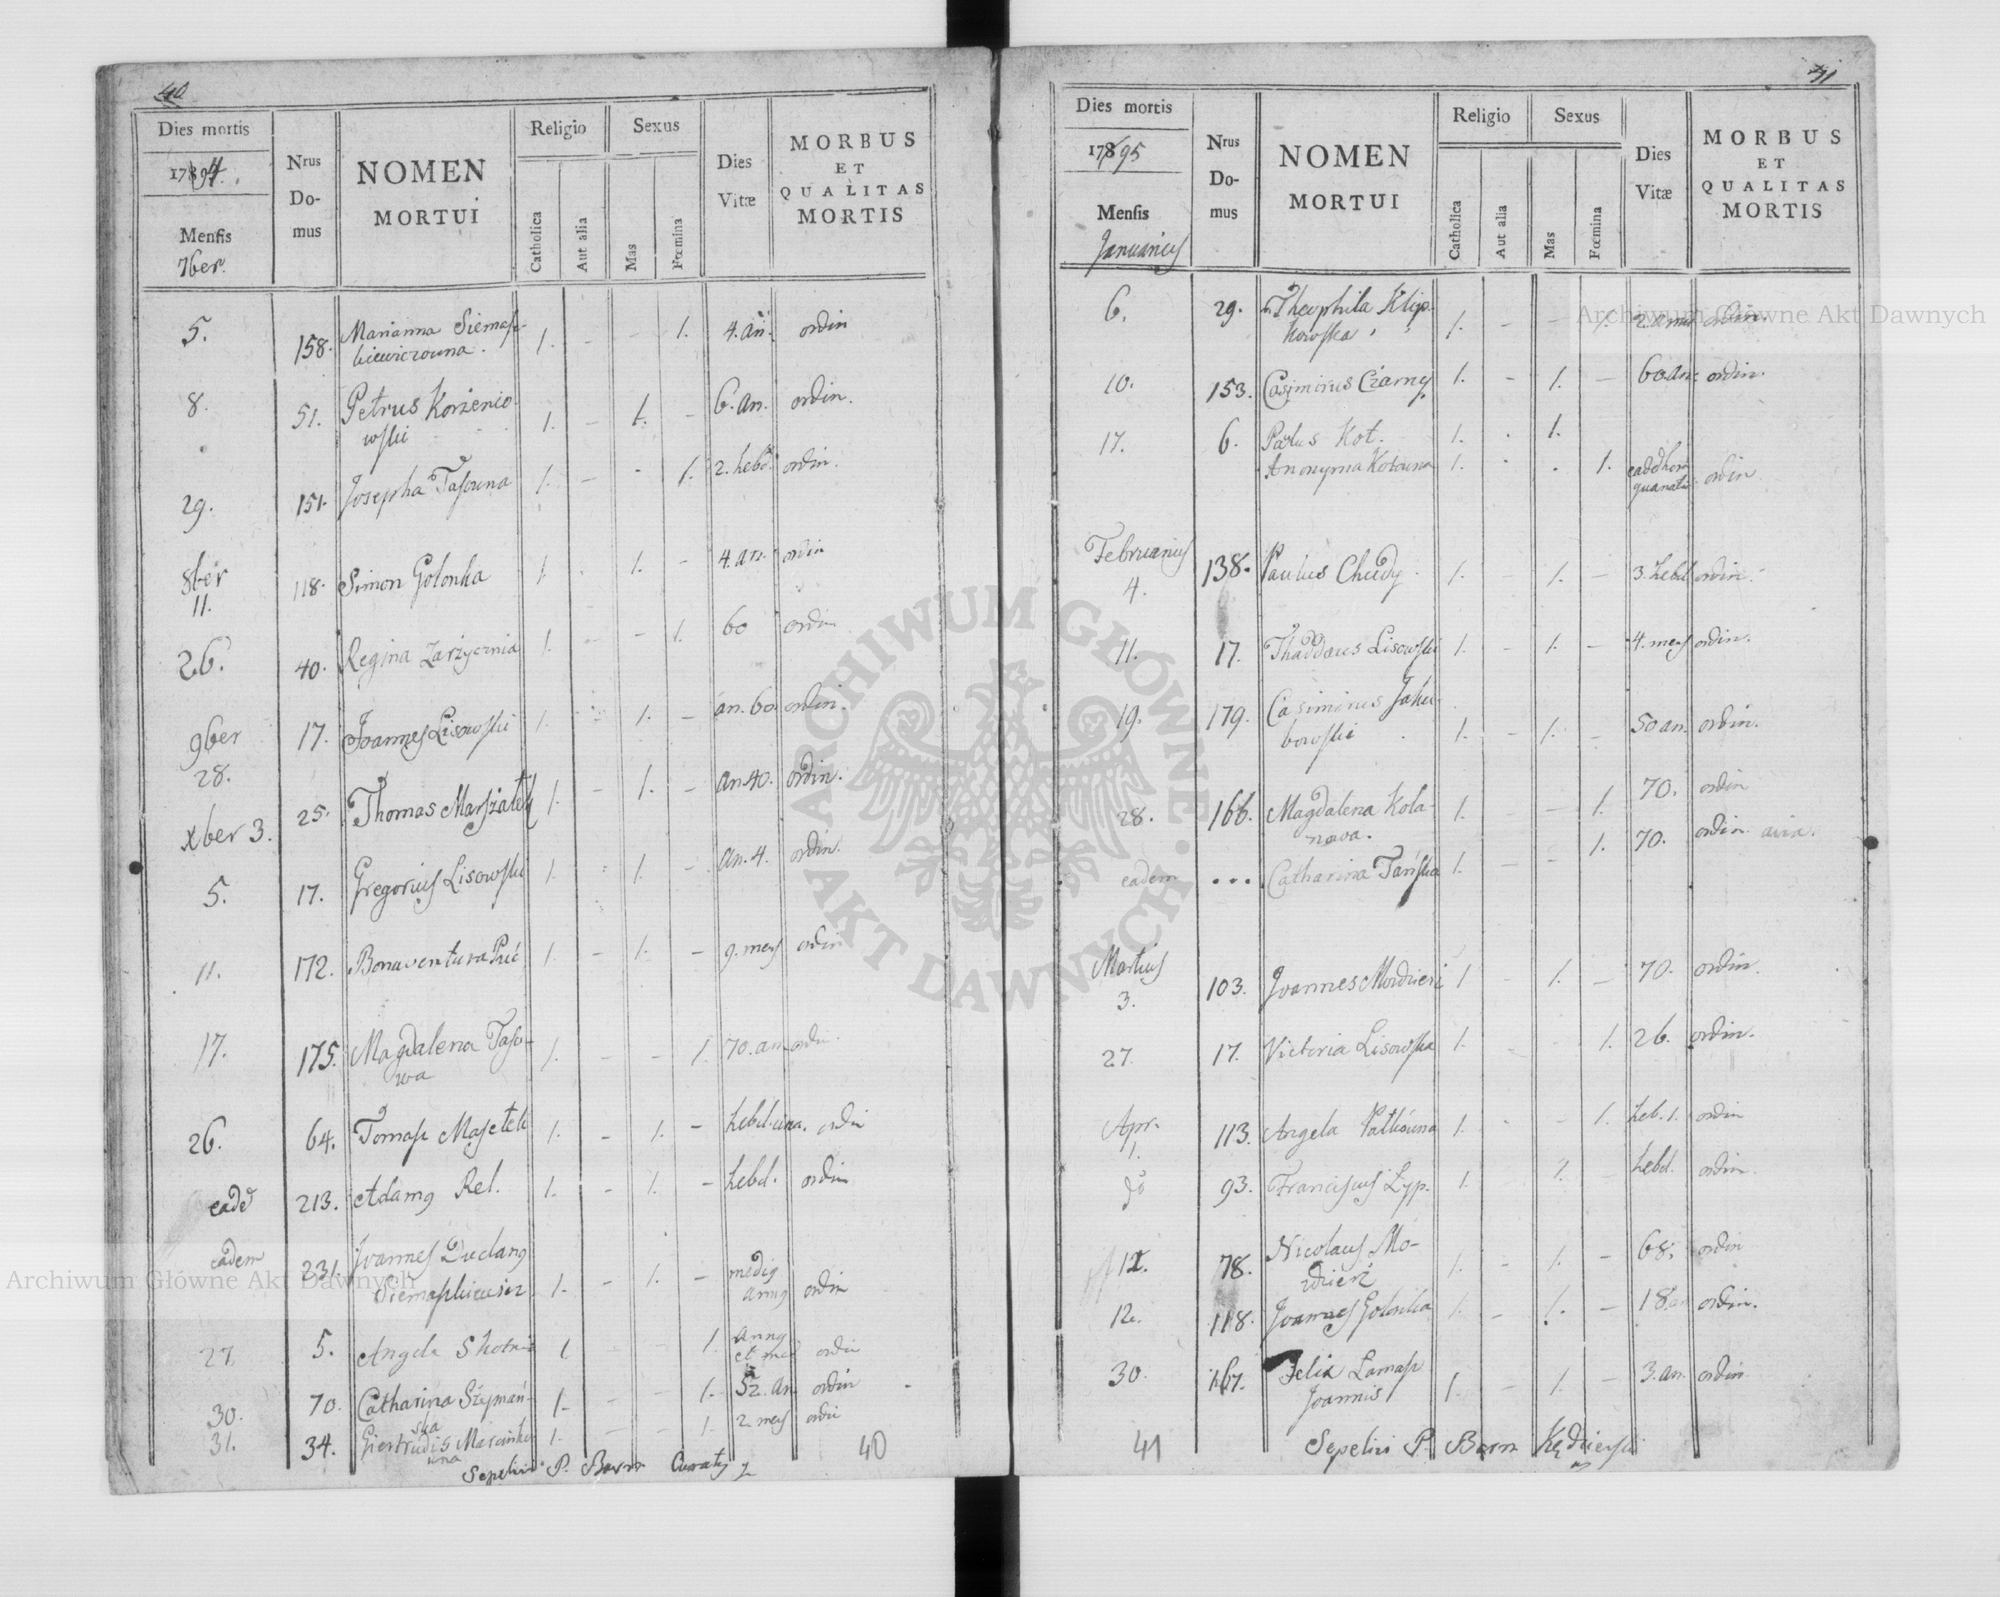 40
Dies mortis
1794.
Mensis
7ber.
Nrus
Do-
mus
NOMEN
MORTUI
Religio
Catholica
Aut alia
Sexus
Mas
Fœmina
Dies
Vitæ
MORBUS
ET
QUALITAS
MORTIS
5. 158. Marianna Siemasz- 1. - - 1. 4. an. ordin
kiewiczowna.
8. 51. Petrus Korżenio- 1. - 1. - 6. an. ordin.
wski
29. 151. Josepha Tasowna 1. - - 1. 2. hebd. ordin.
8ber
11. 118. Simon Golonka 1. . 1. - 4. an. ordin
26. 40. Regina Zarżycznia 1. - - 1. 60 ordin
9ber
28. 17. Joannes Lisowski 1. 1. - an. 60 ordin.
xber 3. 25. Thomas Marszałek 1. - 1. - an. 40. ordin.
5. 17. Gregorius Lisowski 1. 1. - an. 4. ordin.
11. 172. Bonaventura 1. - 1. - 9. mens ordin
17. 175. Magdalena Taso- 1. - - 1. 70. an ordin.
wa
26. 64. Tomasz 1. - 1. - hebd. una. ordin
eadē 213. Adamus Rel. 1. - 1. - hebd. ordin
eadem 231. Joannes
Siemaszkiewicz 1. - 1. - medius
annus ordin
27. 5. Angela 1 - - 1. annus
et med ordin
30. 70. Catharina Szymań- 1. - - 1. 52. an ordin
ska
31. 34. Giertrudis Marcinko- 1. - - 1. 2. mens ordin
wna
Sepelivi P. Bern Curatus
40
41
Dies mortis
1795
Mensis
Januarius
Nrus
Do-
mus
NOMEN
MORTUI
Religio
Catholica
Aut alia
Sexus
Mas
Fœmina
Dies
Vitæ
MORBUS
ET
QUALITAS
MORTIS
6. 29. Theophila Klip- 1. - - 1. ordin.
kowska
10. 153. Casimirus Czarny 1. - 1. - 60 an. ordin.
17. 6. Kot. 1. . 1.
Anonyma Kotowna 1. . . 1. ordin
Februarius
4. 138. Paulus Chudy 1. - 1. - 3. hebd ordin.
11. 17. Thaddæus Lisowski 1. - 1. - 4. mens ordin.
19. 179. Casimirus Jaku-
bowski 1. - 1. - 50 an. ordin.
28. 166. Magdalena Kola- 1. - 1. 70. ordin
nowa.
eadem ... Catharina Tańska 1. - - 1. 70. ordin.
Martius
3. 103. Joannes 1 - 1. - 70. ordin.
27. 17. Victoria Lisowska 1. - 1. 26. ordin.
Apr.
1. 113. Angela 1. - - 1. heb. 1. ordin
93. Franciscus Lyp. 1. 1. hebd. ordin.
12. 78. Nicolaus Mo- 1. - 1. - 68. ordin
12. 118. Joannes Golonka 1. - 1. - 18. an ordin.
30. 167. Felix Lamasz 1. - 1. - 3. an. ordin
Joannis
41
Sepelivi P. Bern Kędzierski
Archiwum Główne Akt Dawnych
Archiwum Główne Akt Dawnych
ARCHIWUM GŁÓWNE AKT DAWNYCH